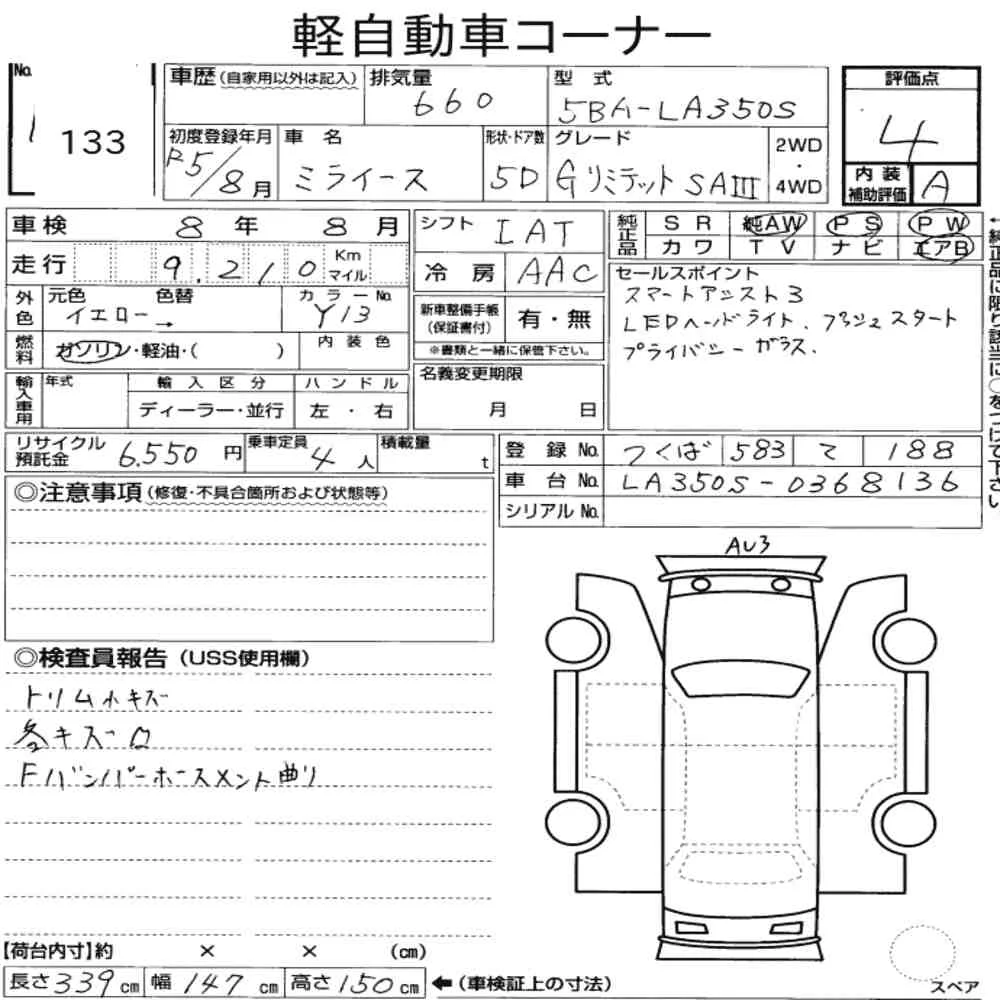 軽自動車コーナー
No. 133
車歴 (自家用以外は記入) 排気量 660 型式 5BA-LA350S
評価点 4
初度登録年月 R5/8月 車名 ミライース 形状・ドア数 5D グレード Gリミテット SAIII 2WD・4WD
内装補助評価 A
車検 8年 8月 シフト IAT 純正品 SR 純AW PS PW
カワ TV ナビ エアB
走行 9,210 Km マイル 冷房 AAC
外色 元色 イエロー → 色替 カラーNo. Y13
新車整備手帳(保証書付) 有・無
※書類と一緒に保管下さい。
燃料 ガソリン・軽油・( ) 内装色
セールスポイント
スマートアシスト3
LEDヘッドライト、プッシュスタート
プライバシーガラス.
←純正品に限り該当に○をつけて下さい
輸入車用 年式 輸入区分 ディーラー・並行 ハンドル 左・右
名義変更期限 月 日
リサイクル預託金 6.550円 乗車定員 4人 積載量 t
登録No. つくば 583 て 188
車台No. LA350S-0368136
シリアルNo.
◎注意事項 (修復・不具合箇所および状態等)
AU3
◎検査員報告 (USS使用欄)
トリム小キズ
各キズロ
Fバンパーホースメント曲リ
【荷台内寸】約 × × (cm)
長さ339cm 幅147cm 高さ150cm ←(車検証上の寸法)
スペア